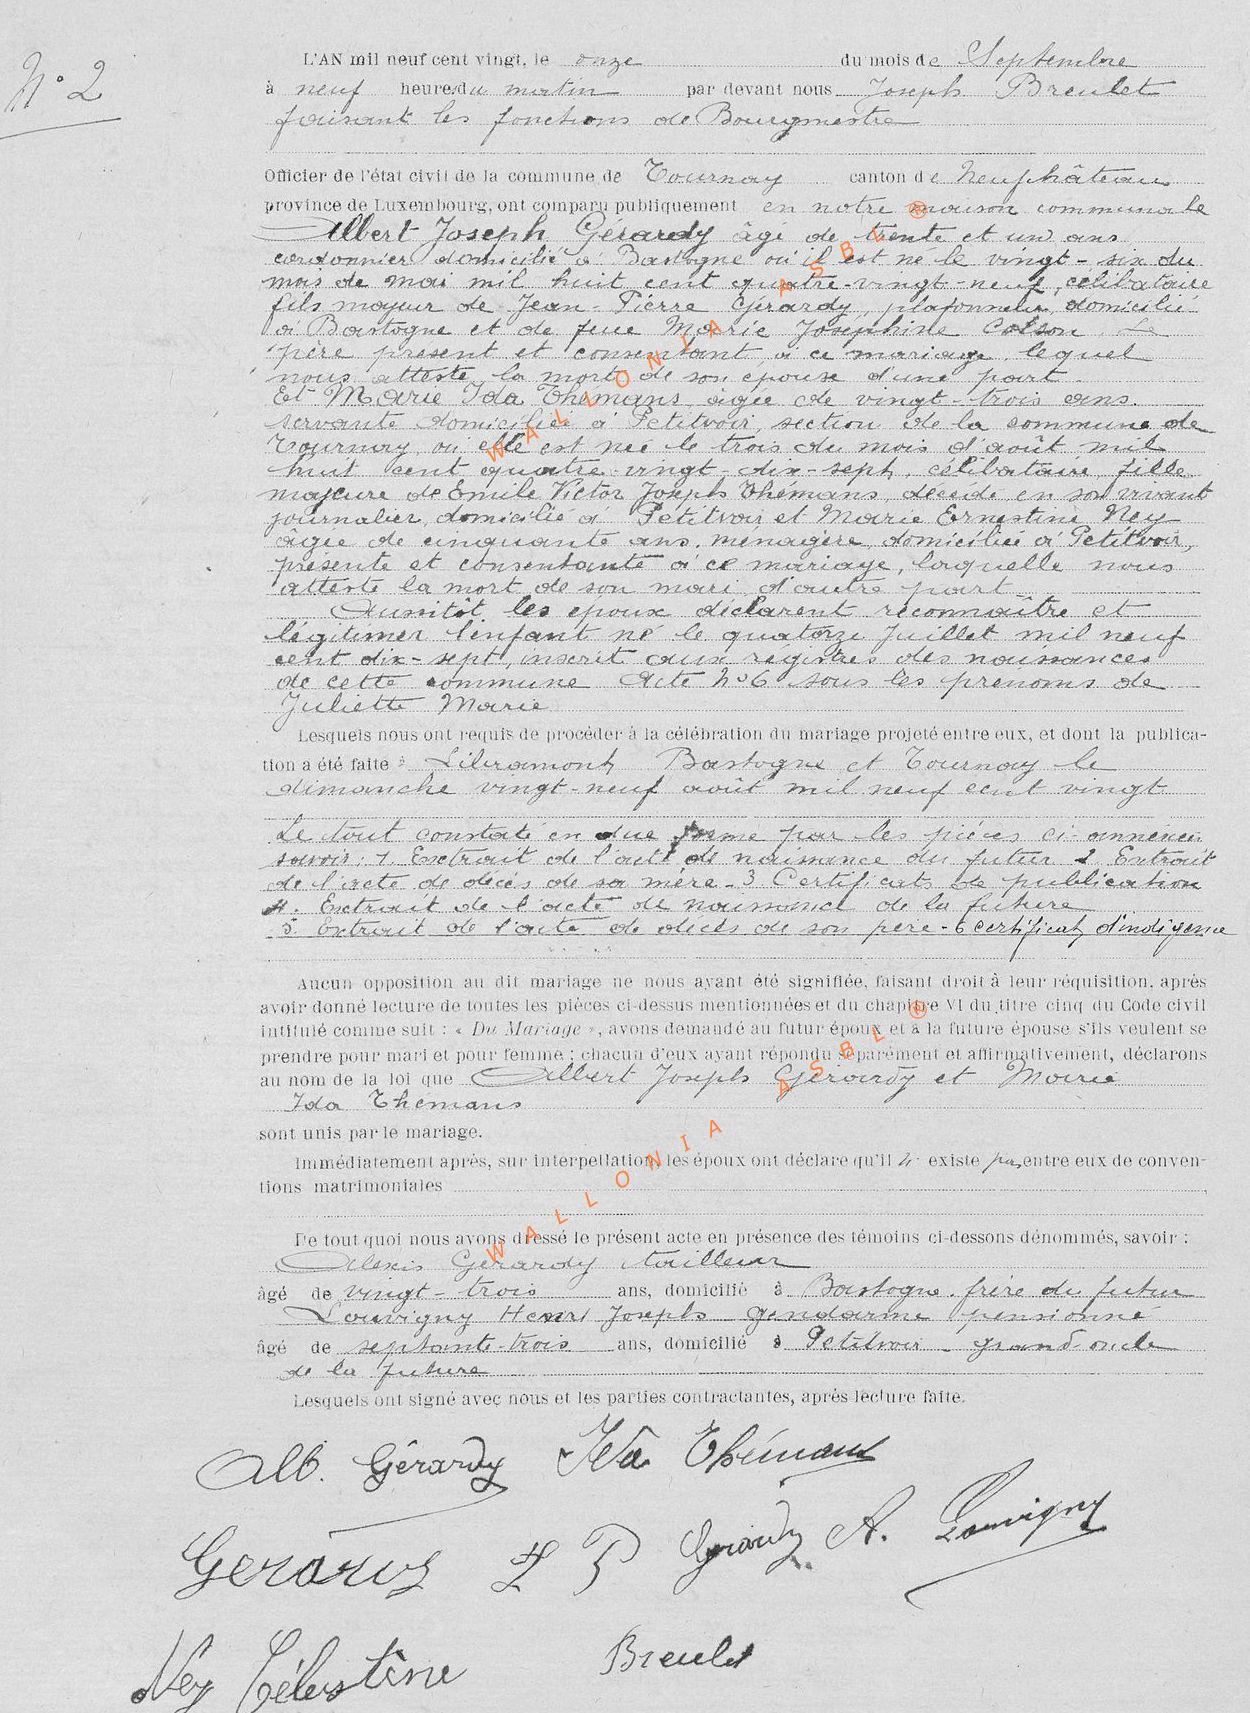 N° 2
L'AN mil neuf cent vingt, le onze du mois de Septembre
à neuf heures du matin par devant nous Joseph Breulet
faisant les fonctions de Bourgmestre
Officier de l'état civil de la commune de Tournay canton de Neufchâteau
province de Luxembourg, ont comparu publiquement en notre maison communale
Albert Joseph Gérardy âgé de trente et un ans
cordonnier domicilié à Bastogne où il est né le vingt-six du
mois de mai mil huit cent quatre-vingt-neuf, célibataire
fils majeur de Jean Pierre Gérardy, plafonneur, domicilié
à Bastogne et de feue Marie Joséphine Colson Le
père présent et consentant à ce mariage lequel
nous atteste la mort de son épouse d'une part.
Et Marie Ida Thémans âgée de vingt-trois ans.
servante domiciliée à Petitvoir, section de la commune de
Tournay, où elle est née le trois du mois d'août mil
huit cent quatre-vingt-dix-sept, célibataire, fille
majeure de Emile Victor Joseph Thémans décédé en son vivant
journalier, domicilié à Petitvoir et Marie Ernestine Ney
âgée de cinquante ans, ménagère, domiciliée à Petitvoir,
présente et consentante à ce mariage, laquelle nous
atteste la mort de son mari d'autre part
Aussitôt les époux déclarent reconnaître et
légitimer l'enfant né le quatorze Juillet mil neuf
cent dix-sept, inscrit aux régistres des naissances
de cette commune Acte N° 6 sous les prénoms de
Juliette Marie
Lesquels nous ont requis de procéder à la célébration du mariage projeté entre eux, et dont la publica-
tion a été faite à Libramont, Bastogne et Tournay le
dimanche vingt-neuf août mil neuf cent vingt
Le tout constaté en due forme par les pièces ci-annexées
savoir: 1 Extrait de l'acte de naissance du futur 2 Extrait
de l'acte de décès de sa mère - 3 Certificats de publication
4. Extrait de l'acte de naissance de la future
5. Extrait de l'acte de décès de son père - 6 certificat d'indigence
Aucun opposition au dit mariage ne nous ayant été signifiée, faisant droit à leur réquisition, après
avoir donné lecture de toutes les pièces ci-dessus mentionnées et du chapitre VI du titre cinq du Code civil
intitulé comme suit : « Du Mariage », avons demandé au futur époux et à la future épouse s'ils veulent se
prendre pour mari et pour femme ; chacun d'eux ayant répondu séparément et affirmativement, déclarons
au nom de la loi que Albert Joseph Gérardy et Marie
Ida Thémans
sont unis par le mariage.
Immédiatement après, sur interpellation, les époux ont déclaré qu'il n' existe pas entre eux de conven-
tions matrimoniales
De tout quoi nous avons dressé le présent acte en présence des témoins ci-dessons dénommés, savoir :
Alexis Gérardy tailleur
âgé de vingt-trois ans, domicilié à Bastogne frère du futur
Louvigny Henri Joseph gendarme pensionné
âgé de septante-trois ans, domicilié à Petitvoir - grand-oncle
de la future
Lesquels ont signé avec nous et les parties contractantes, après lecture faite.
Alb. Gérardy Ida Thémans
Gerardy J P Gerardy A. Louvigny
Ney Célestine Breulet
WALLONIA ASBL ®
WALLONIA ASBL ®